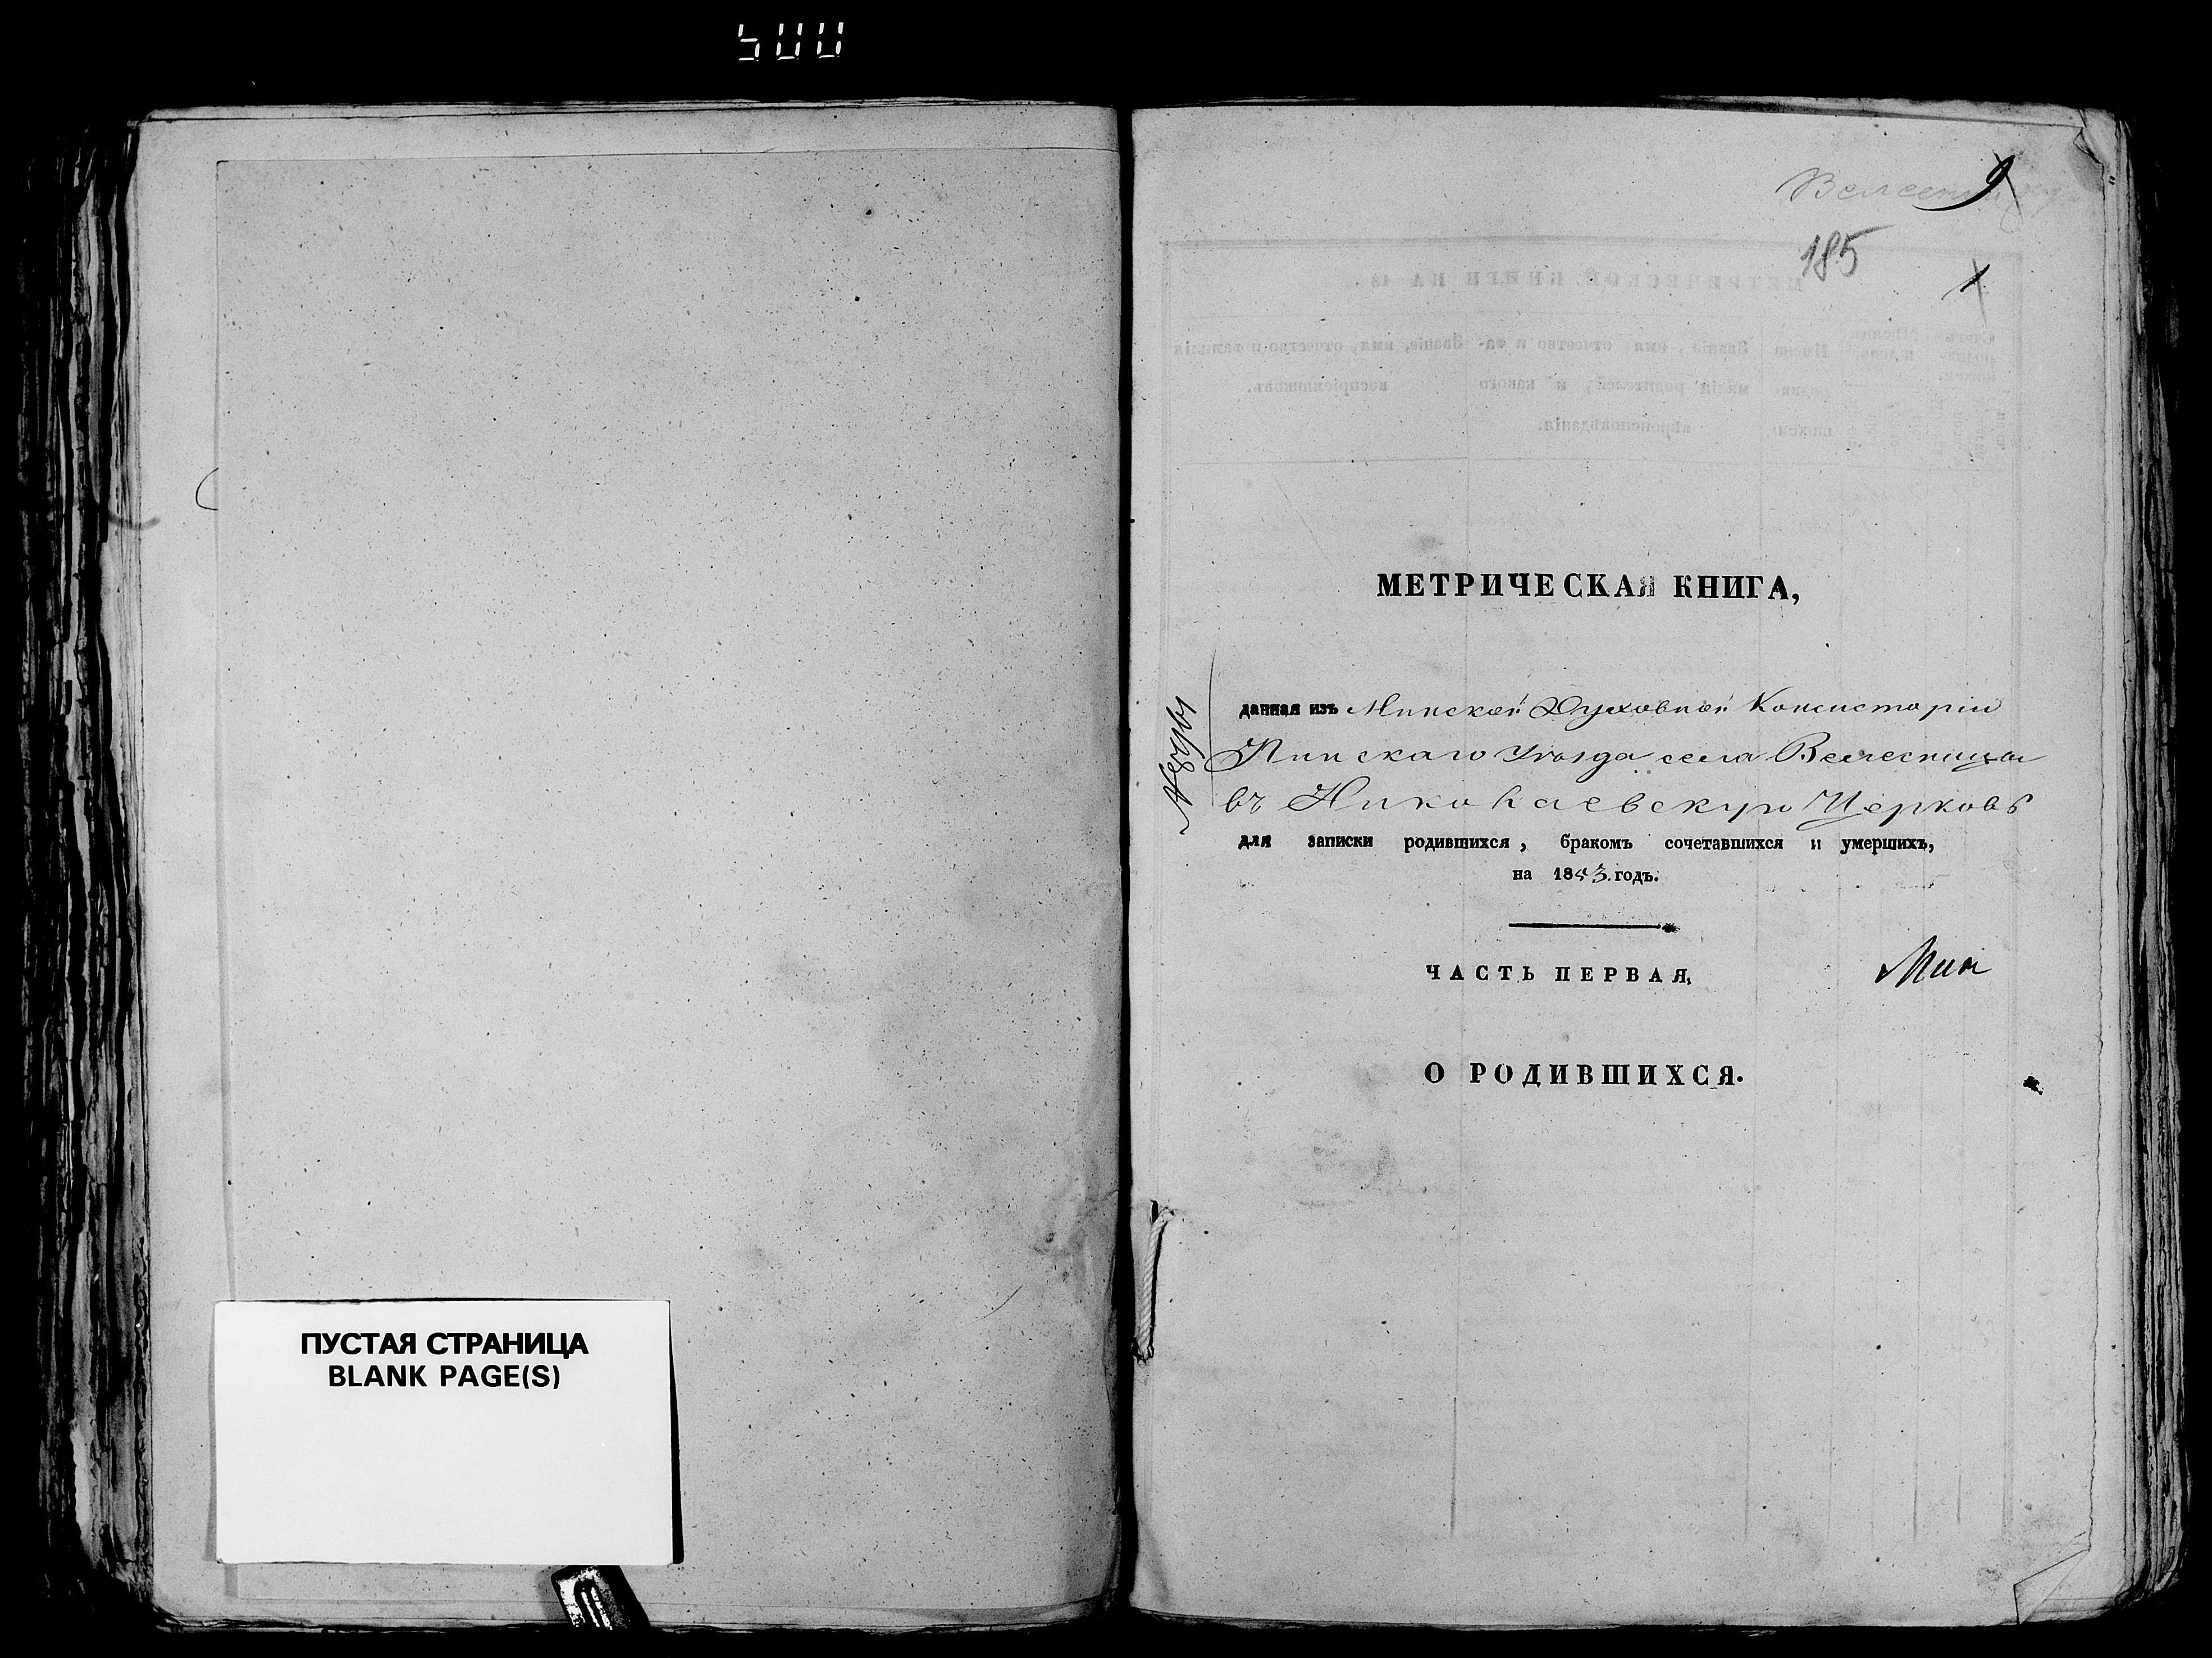 500
ПУСТАЯ СТРАНИЦА
BLANK PAGE(S)
9
185
1
МЕТРИЧЕСКАЯ КНИГА,
данная изъ Минской Духовной Консисторіи
Пинскаго Уѣзда села Велесницы
въ Николаевскую Церковь
для записки родившихся, бракомъ сочетавшихся и умершихъ,
на 1853. годъ.
ЧАСТЬ ПЕРВАЯ,
О РОДИВШИХСЯ.